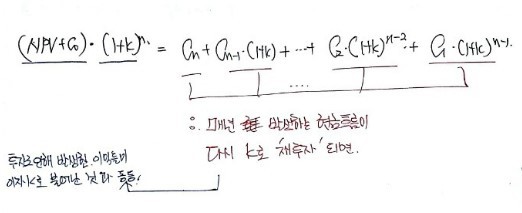 (NPV+C₀)·(1+k)ⁿ = Cₙ + Cₙ₋₁·(1+k) + ... + C₂·(1+k)ⁿ⁻² + C₁·(1+k)ⁿ⁻¹
....
∴ 매년 발생하는 현금흐름이
다시 k로 '재투자' 되면.
투자로 인해 발생한 이익들이
이자율 k로 불어난 것과 동일!